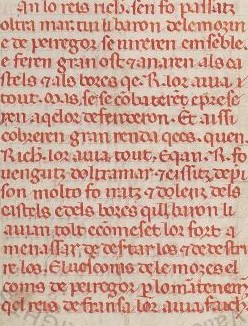 An lo reis rich. sen fo passatz
oltra mar. tuit li baron de lemozin
e de peiregor se uireren ensẽble.
e feren gran ost ⁊ anaren als ca
stels ⁊ als borcs qe .R. lor auia
tout.
ren aqelor defenderon. Et aissi
cobreren gran renda qecs. quen
Rich. lor auia tout. Eqan .R. fo
uengutz doltramar ⁊ eissitz de pi
son molto fo iratz ⁊ dolenz dels
castels ⁊ dels borcs qill baron li
auian tolt ⁊ comẽset lor fort a
menassar de desfar los ⁊ de destr
re los.
coms de peiregor p lo mãtenen
qel reis de fransa lor auia faich